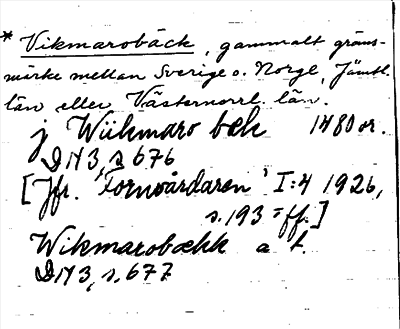 * Vikmarobäck, gammalt gräns-
märke mellan Sverige o. Norge, Jämtl.
län eller Västernorrl. län.
j Wiikmaro bek 1480 or.
DN3, s 676
[Jfr. 'Fornvårdaren' I:4 1926,
s. 193 ff.]
Wikmarobækk a. st.
DN3, s. 677